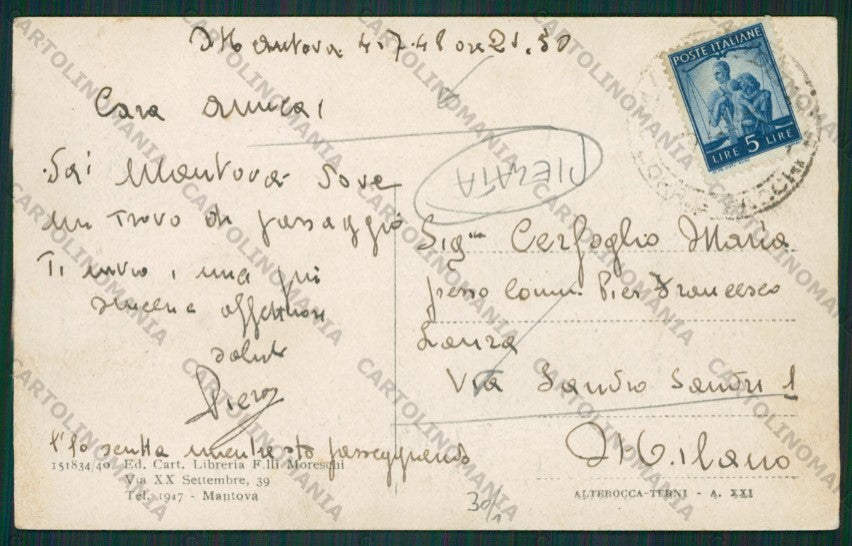 Mantova 4.7.48 ore 21.50
Cara amica!
Da Mantova dove
mi trovo di passaggio
Ti invio, i miei più
sinceri affettuosi
saluti
Piero
l'ho scritta mentre sto passeggiando
151834/40 Ed. Cart. Libreria F.lli Moreschi
Via XX Settembre, 39
Tel. 1947 - Mantova
POSTE ITALIANE
LIRE 5 LIRE
PIEGATA
Sig.na Cerfoglio Maria
presso Comm. Pier Francesco
Laura
Via Sandro Sandri 1
Milano
30/
ALTEROCCA-TERNI - A. XXI
CARTOLINOMANIA